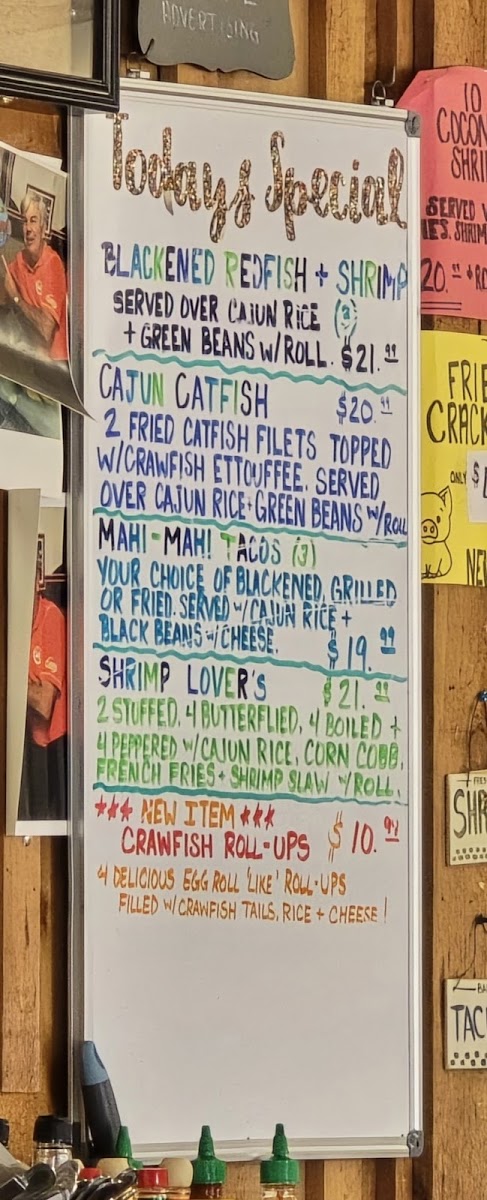 ADVERTISING
Todays Special
BLACKENED REDFISH + SHRIMP
SERVED OVER CAJUN RICE
+ GREEN BEANS W/ROLL. $21.99
CAJUN CATFISH $20.99
2 FRIED CATFISH FILETS TOPPED
W/CRAWFISH ETTOUFFEE. SERVED
OVER CAJUN RICE + GREEN BEANS W/ROLL
MAHI-MAHI TACOS (3)
YOUR CHOICE OF BLACKENED, GRILLED
OR FRIED. SERVED W/CAJUN RICE +
BLACK BEANS W/CHEESE. $19.99
SHRIMP LOVER'S $21.99
2 STUFFED, 4 BUTTERFLIED, 4 BOILED +
4 PEPPERED W/CAJUN RICE, CORN COBB,
FRENCH FRIES + SHRIMP SLAW W/ROLL.
*** NEW ITEM ***
CRAWFISH ROLL-UPS $10.99
4 DELICIOUS EGG ROLL 'LIKE' ROLL-UPS
FILLED W/CRAWFISH TAILS, RICE + CHEESE!
10
COCON
SHRI
SERVED
IES. SHRIM
20.99
FRIE
CRACK
ONLY $
NEW
SHR
TAC